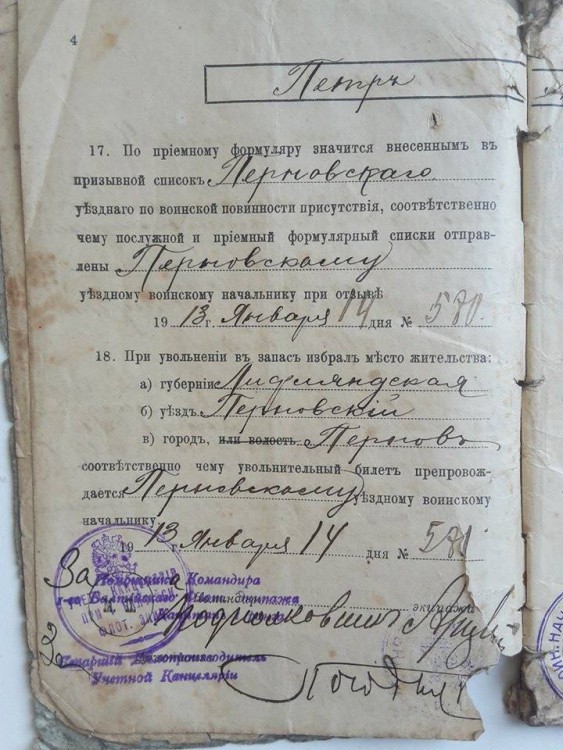 4
Петръ
17. По пріемному формуляру значится внесеннымъ въ
призывной списокъ Перновскаго
уѣзднаго по воинской повинности присутствія, соотвѣтственно
чему послужной и пріемный формулярный списки отправ-
лены Перновскому
уѣздному воинскому начальнику при отзывѣ
1913 г. Января 14 дня № 580.
18. При увольненіи въ запасъ избралъ мѣсто жительства:
а) губернію Лифляндская
б) уѣздъ Перновскій
в) городъ, или волость Перновъ
соотвѣтственно чему увольнительный билетъ препровож-
дается Перновскому уѣздному воинскому
начальнику
1913 г. Января 14 дня № 581
За Помощника Командира
1-го Балтійскаго Флотскаго Экипажа
Капитанъ
экипажа
За Старшій Дѣлопроизводитель
Учетной Канцеляріи